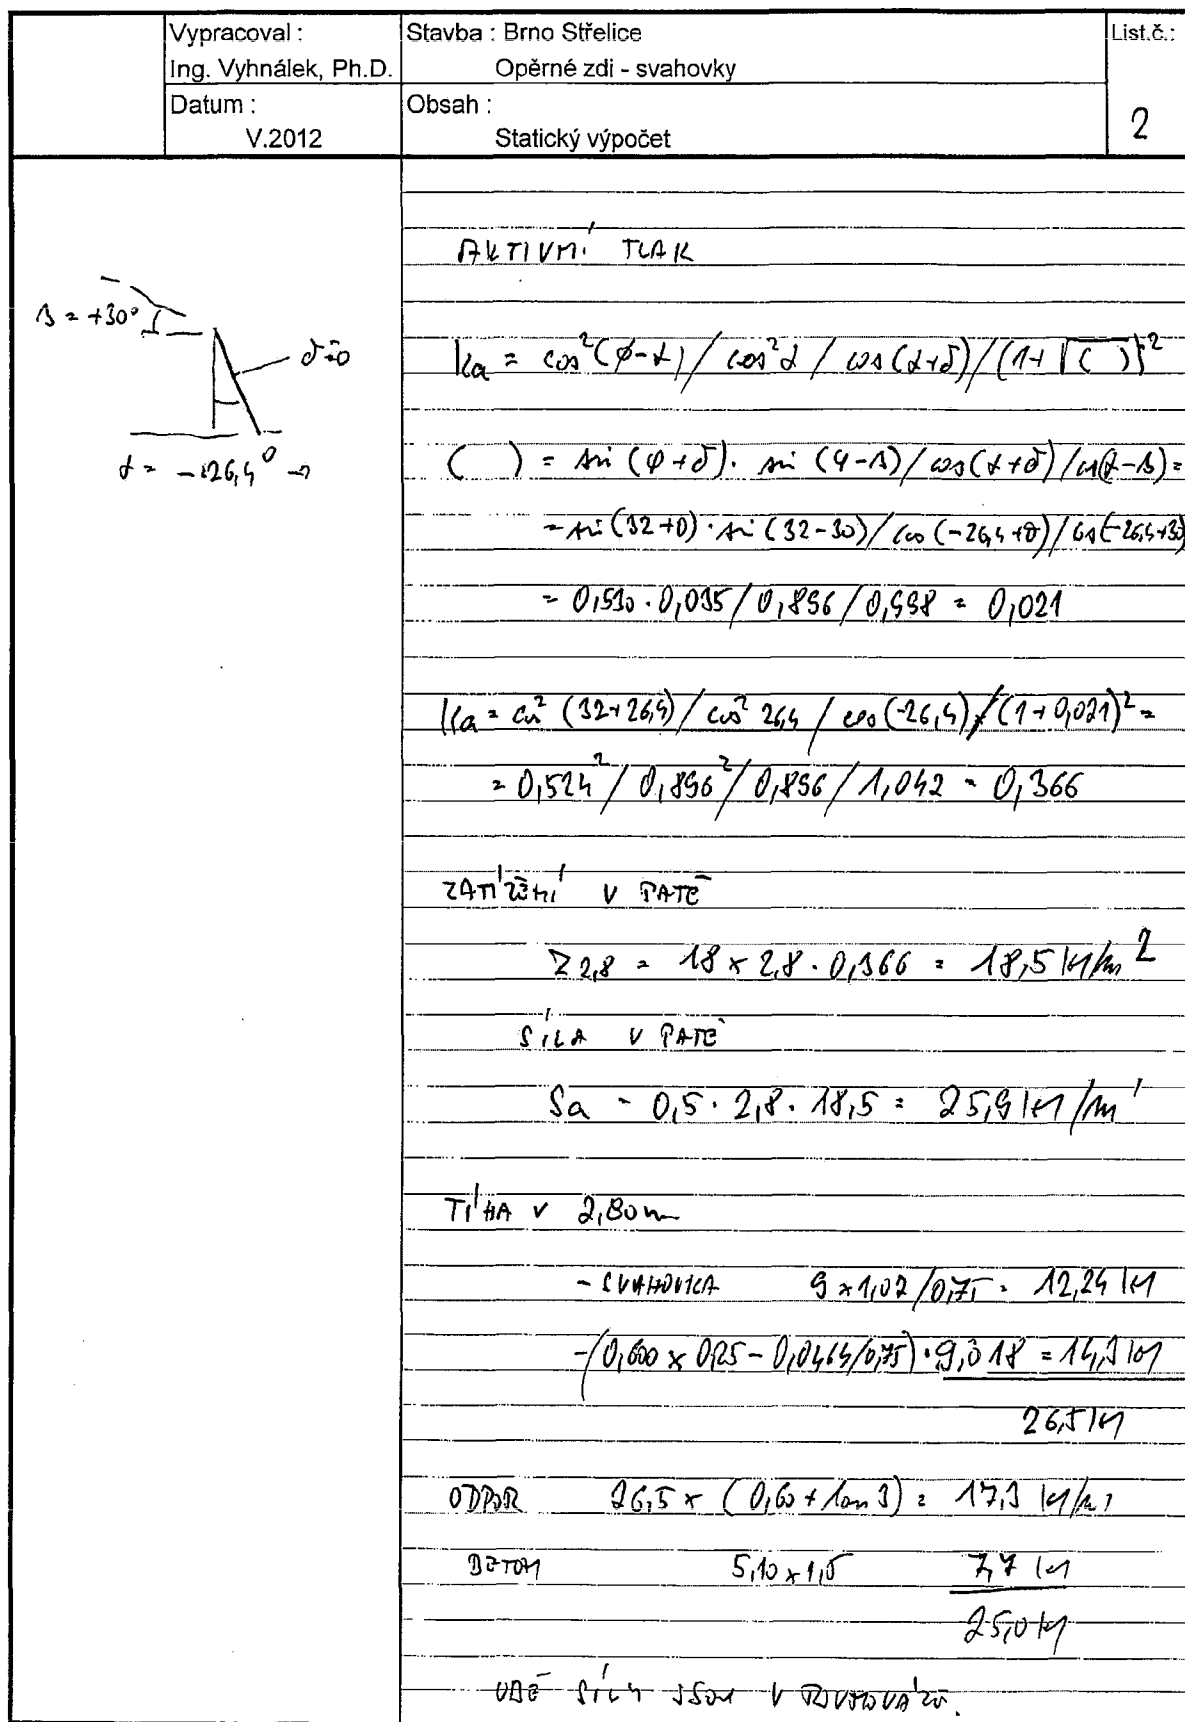 Vypracoval :
Ing. Vyhnálek, Ph.D.
Datum :
V.2012
Stavba : Brno Střelice
Opěrné zdi - svahovky
Obsah :
Statický výpočet
List.č.:
2
β = +30°
δ=0
α = -26,4°
AKTIVNÍ TLAK
Ka = cos²(φ-α) / cos²α / cos(α+δ) / (1+√( ))²
( ) = sin (φ+δ) . sin (φ-β) / cos(α+δ) / cos(α-β) =
= sin (32+0) . sin (32-30) / cos (-26,4+0) / cos(-26,4+30)
= 0,530 . 0,035 / 0,896 / 0,998 = 0,021
Ka = cos² (32+26,4) / cos² 26,4 / cos (-26,4) / (1+0,021)² =
= 0,524² / 0,896² / 0,896 / 1,042 = 0,366
ZATÍŽENÍ V PATĚ
Z 2,8 = 18 x 2,8 . 0,366 = 18,5 kN/m²
SÍLA V PATĚ
Sa = 0,5 . 2,8 . 18,5 = 25,9 kN/m'
TÍHA V 2,80m
- SVAHOVKA 9 x 1,02/0,75 = 12,24 kN
- (0,600 x 0,25 - 0,0464/0,75) . 9,0 18 = 14,3 kN
26,5 kN
ODPOR 26,5 x (0,60 + tan 3) = 17,3 kN/m'
BETON 5,10 x 1,5 7,7 kN
25,0 kN
OBĚ SÍLY JSOU V ROVNOVÁZE.